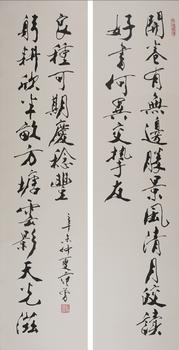 開卷有無邊勝景風清月皎讀
好書何異交摯友
躬耕欣半畝方塘雲影天光滋
良種可期慶稔豐
辛未仲夏